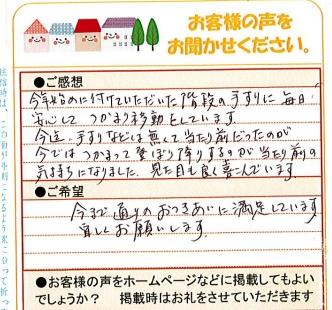 お客様の声を
お聞かせください。
●ご感想
今年始めに付けていただいた階段の手すりに毎日
安心してつかまり移動をしています
今迄、手すりなどは無くて当たり前だったのが
今ではつかまって登ぼり降りするのが当たり前の
気持ちになりました。見た目も良く喜こんでいます。
●ご希望
今まで通りのおつきあいに満足しています
宜しくお願いします。
●お客様の声をホームページなどに掲載してもよい
でしょうか？ 掲載時はお礼をさせていただきます